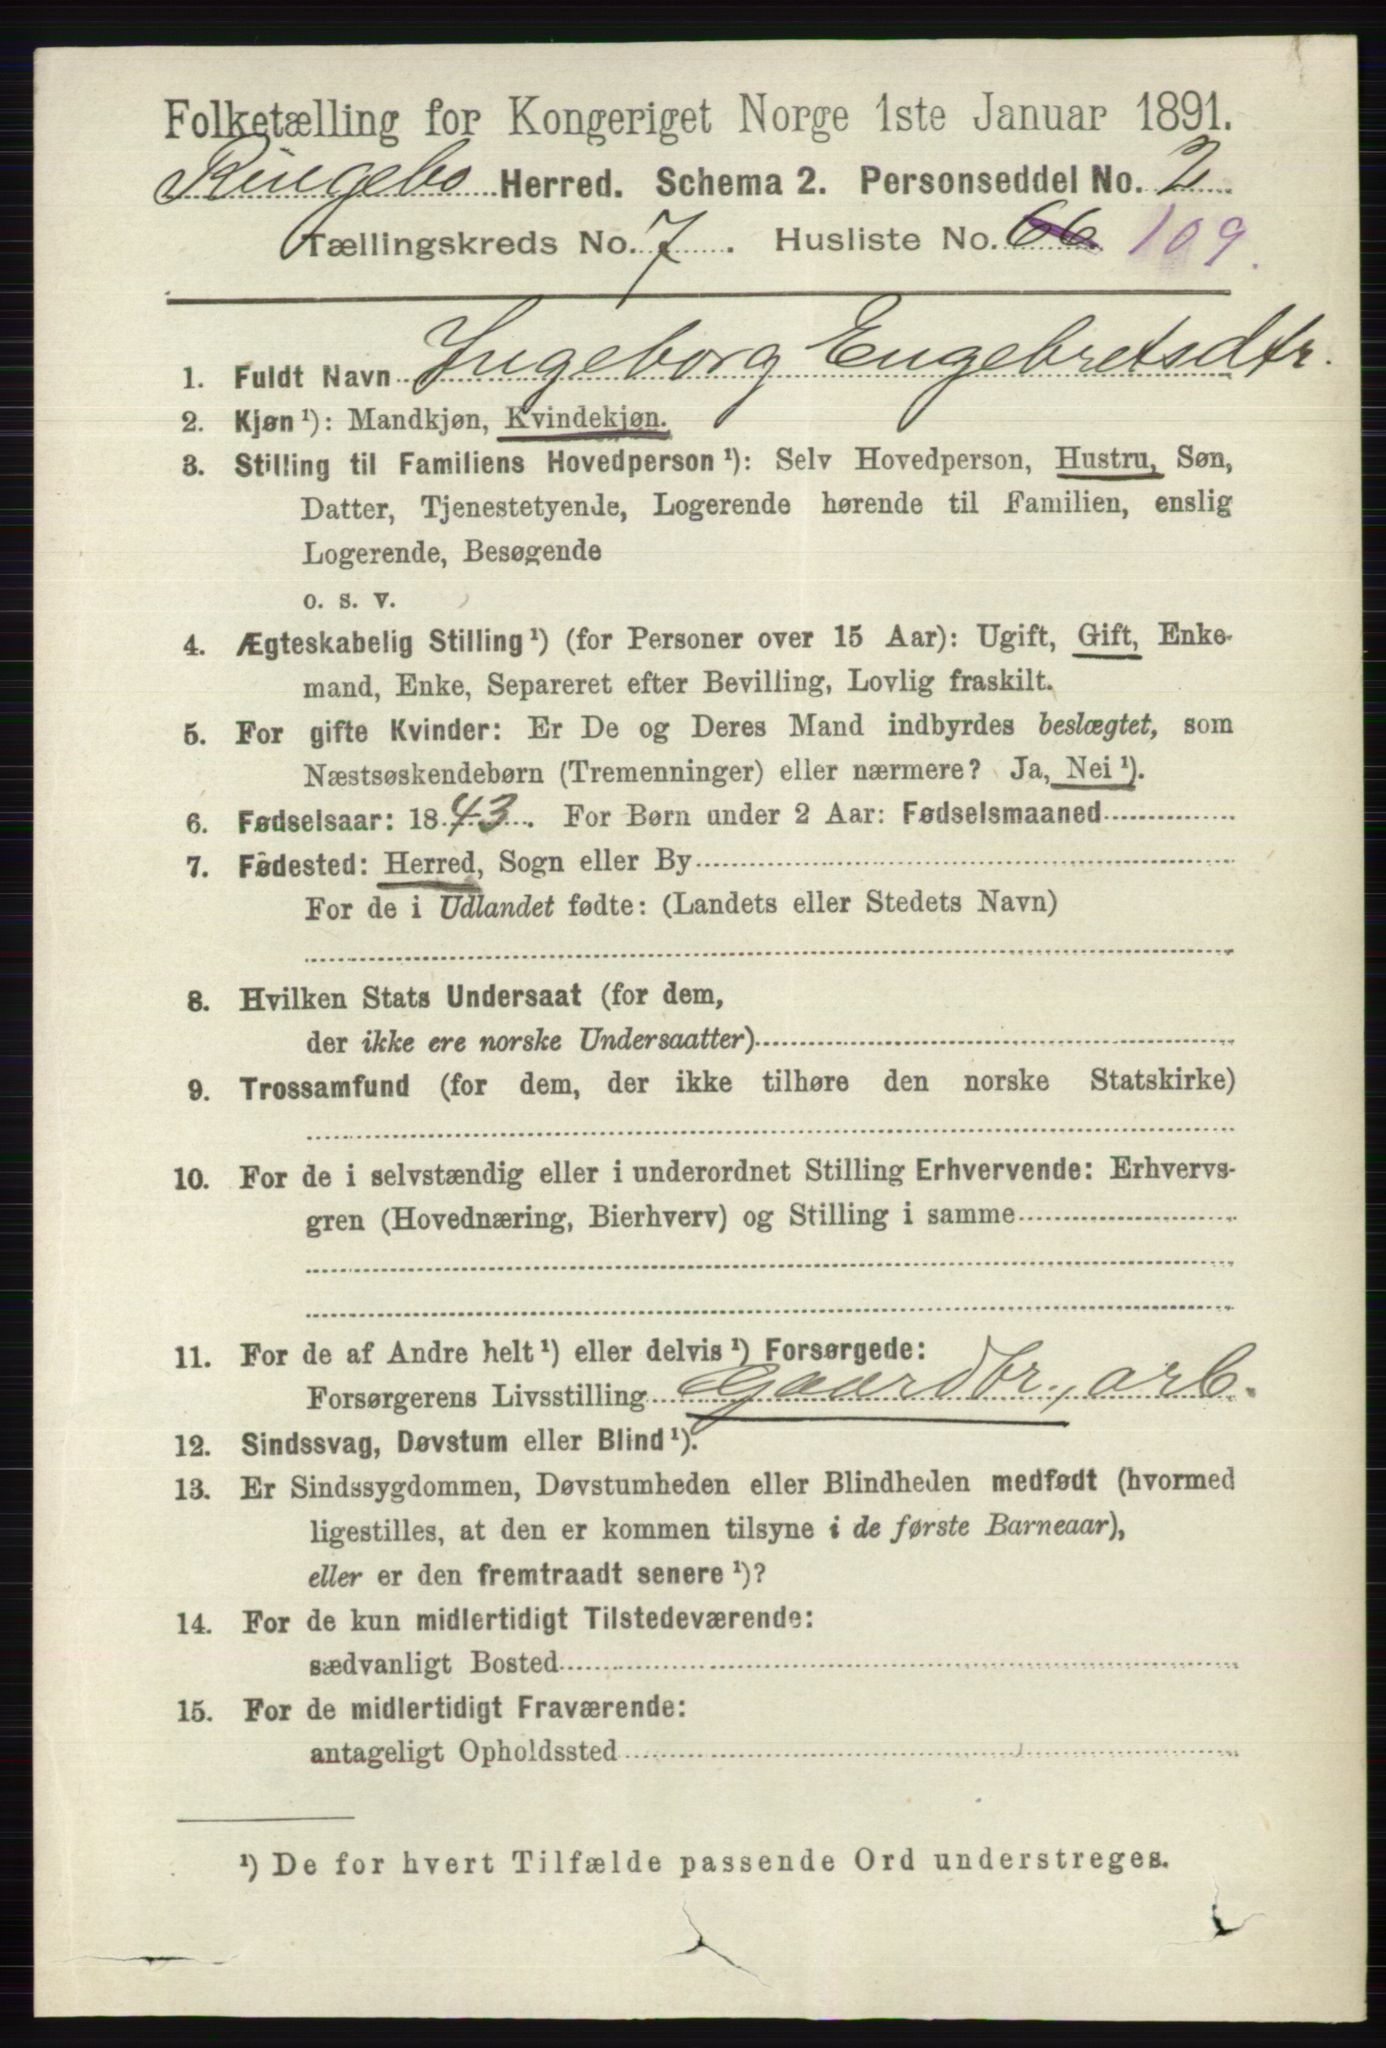 Folketælling for Kongeriget Norge 1ste Januar 1891.
Ringebo Herred. Schema 2. Personseddel No. 2
Tællingskreds No. 7. Husliste No. 66 109.
1. Fuldt Navn Ingeborg Engebretsdtr.
2. Kjøn¹): Mandkjøn, Kvindekjøn.
3. Stilling til Familiens Hovedperson¹): Selv Hovedperson, Hustru, Søn,
Datter, Tjenestetyende, Logerende hørende til Familien, enslig
Logerende, Besøgende
o. s. v.
4. Ægteskabelig Stilling¹) (for Personer over 15 Aar): Ugift, Gift, Enke-
mand, Enke, Separeret efter Bevilling, Lovlig fraskilt.
5. For gifte Kvinder: Er De og Deres Mand indbyrdes beslægtet, som
Næstsøskendebørn (Tremenninger) eller nærmere? Ja, Nei¹).
6. Fødselsaar: 1843. For Børn under 2 Aar: Fødselsmaaned
7. Fødested: Herred, Sogn eller By
For de i Udlandet fødte: (Landets eller Stedets Navn)
8. Hvilken Stats Undersaat (for dem,
der ikke ere norske Undersaatter)
9. Trossamfund (for dem, der ikke tilhøre den norske Statskirke)
10. For de i selvstændig eller i underordnet Stilling Erhvervende: Erhvervs-
gren (Hovednæring, Bierhverv) og Stilling i samme
11. For de af Andre helt¹) eller delvis¹) Forsørgede:
Forsørgerens Livsstilling Gaardbr., arb.
12. Sindssvag, Døvstum eller Blind¹).
13. Er Sindssygdommen, Døvstumheden eller Blindheden medfødt (hvormed
ligestilles, at den er kommen tilsyne i de første Barneaar),
eller er den fremtraadt senere¹)?
14. For de kun midlertidigt Tilstedeværende:
sædvanligt Bosted
15. For de midlertidigt Fraværende:
antageligt Opholdssted
¹) De for hvert Tilfælde passende Ord understreges.